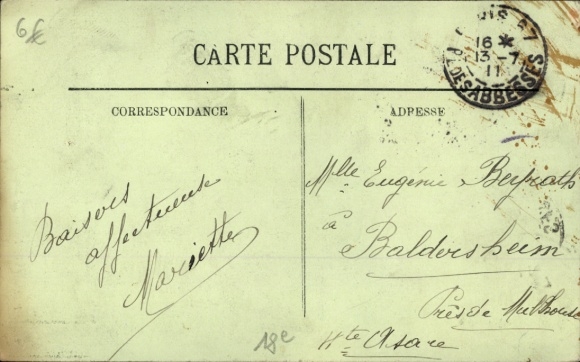 6€
CARTE POSTALE
PARIS 57
16 *
13 - 7
11
PL. DES ABBESSES
CORRESPONDANCE
ADRESSE
Baisers
affectueuse
Mariette
Mlle Eugénie Beyrath
à
Baldersheim
Près de Mulhouse
Hte Alsace
18e